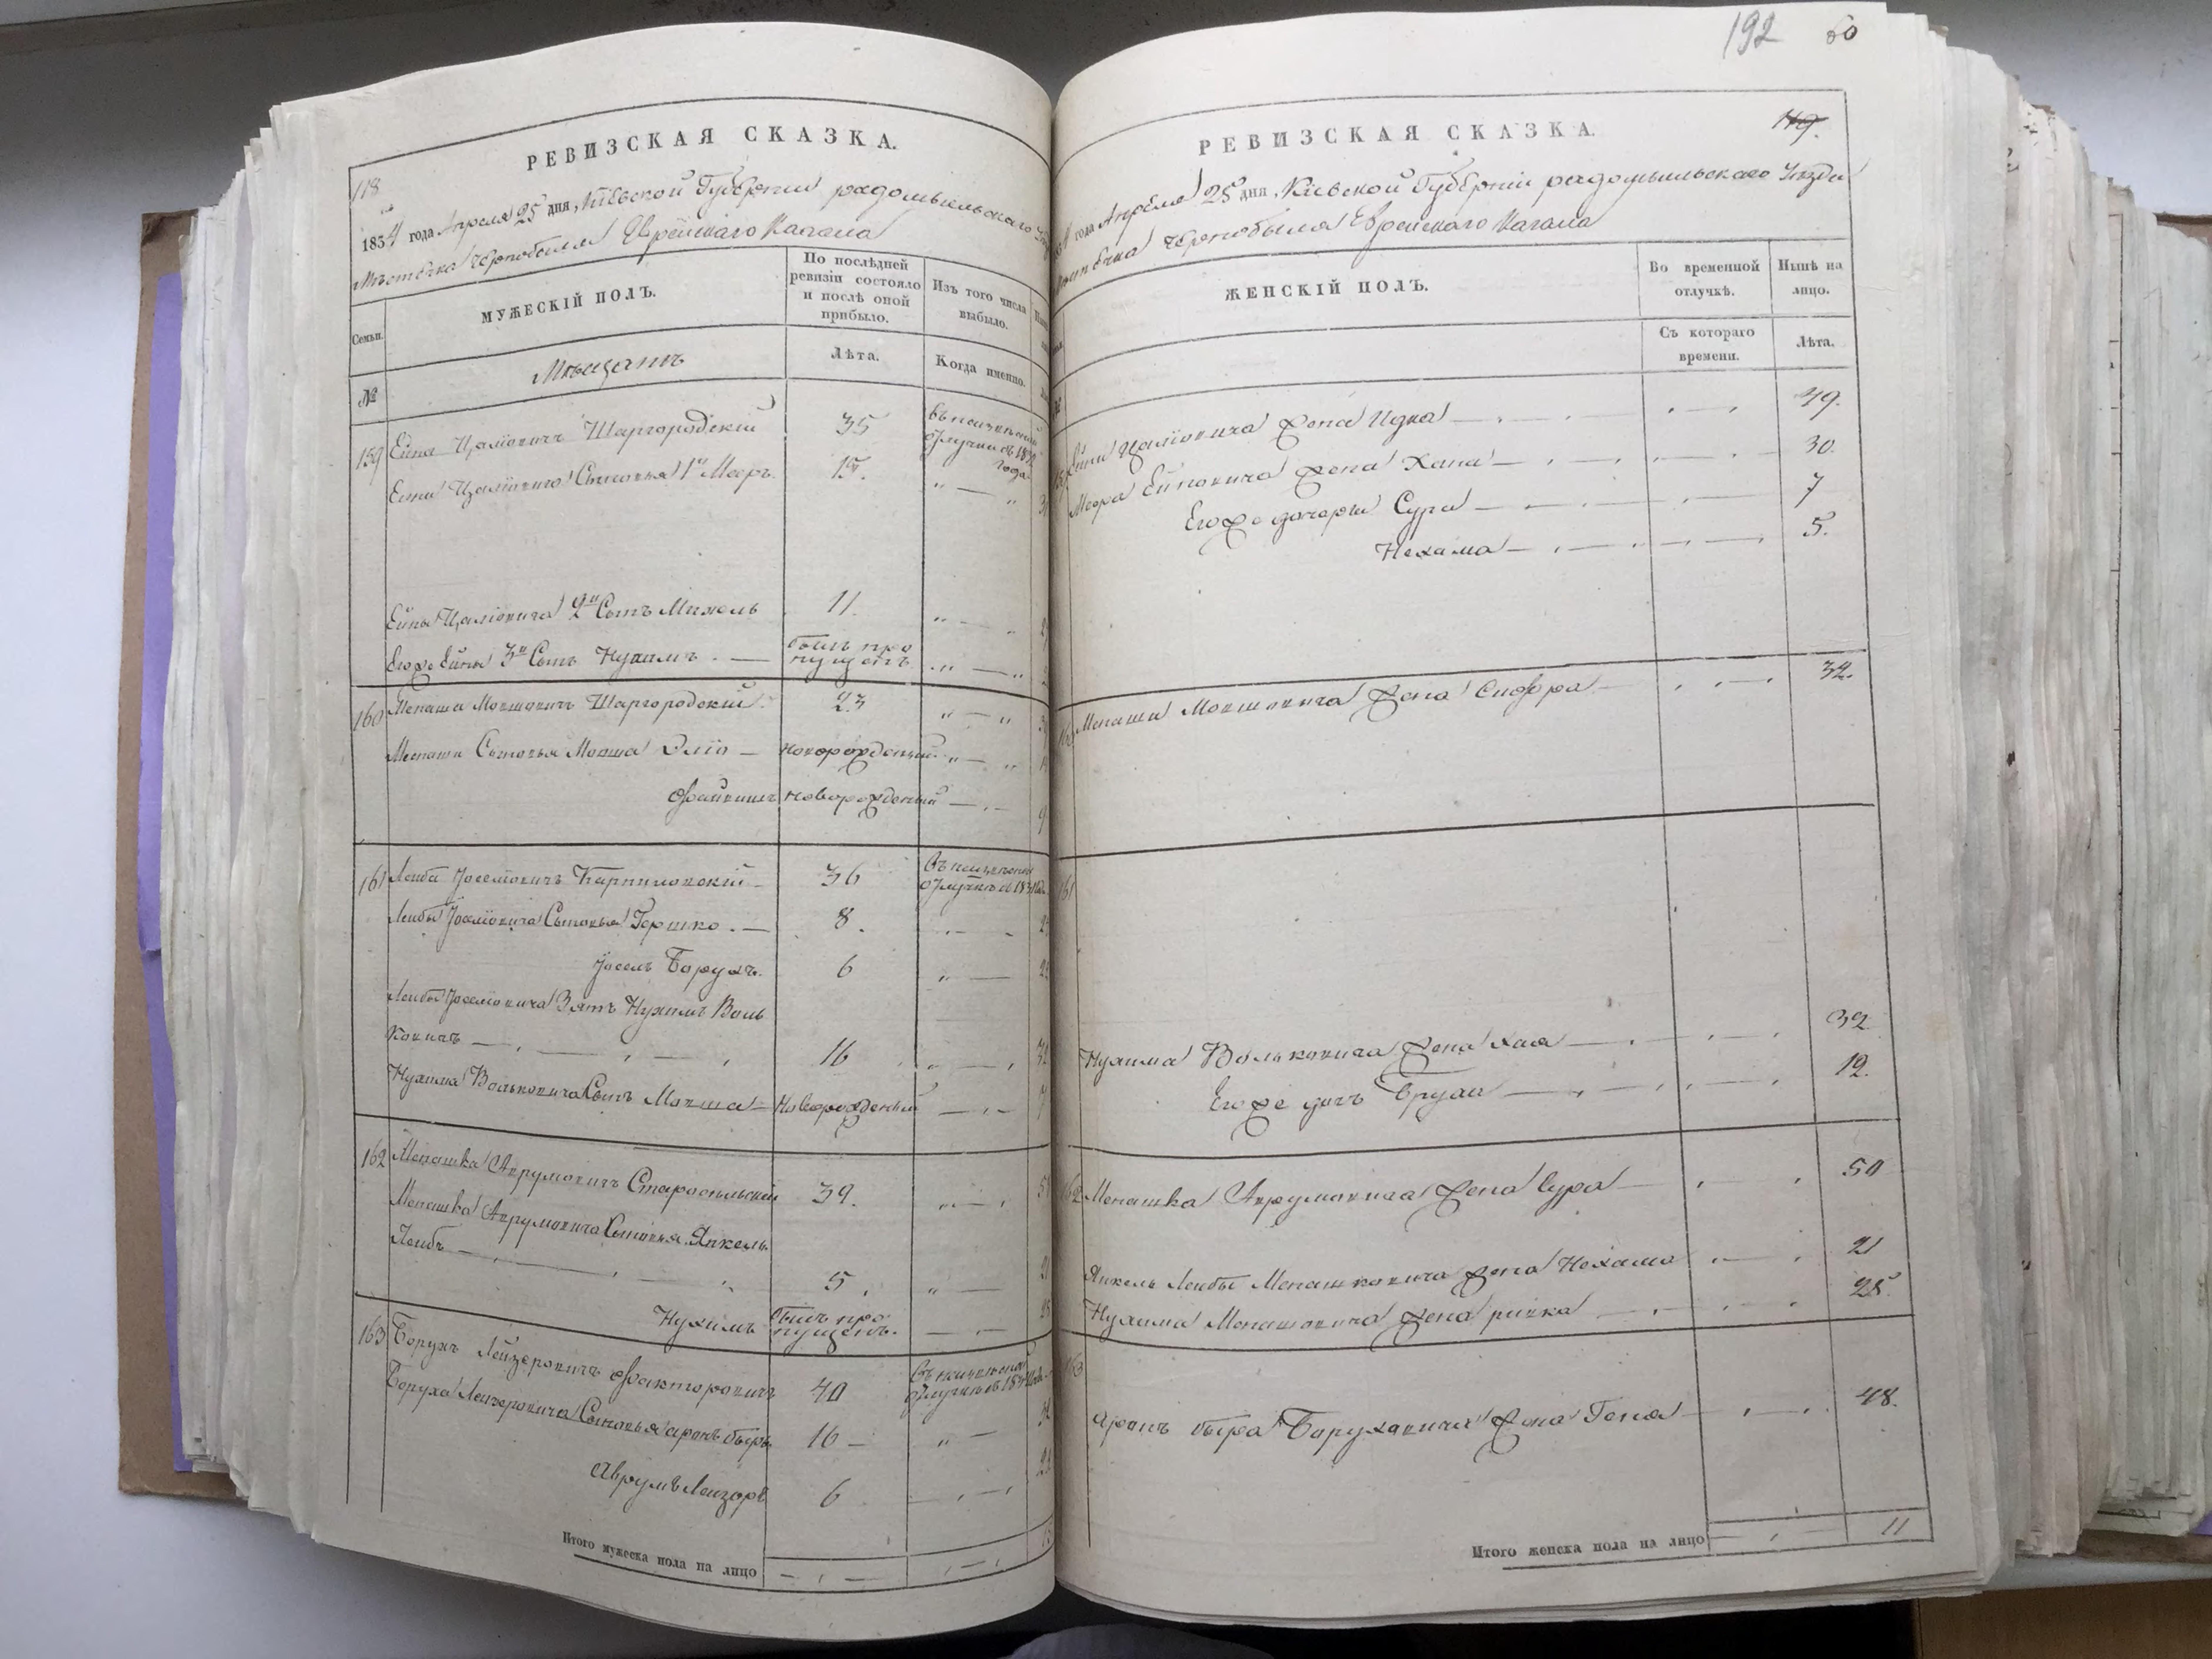 118
РЕВИЗСКАЯ СКАЗКА.
1834 года Апреля 25 дня, Кіевской Губерніи радомысльскаго
Мѣстечка Чернобыля Еврейскаго Кагала
Семьи.
МУЖЕСКІЙ ПОЛЪ.
По послѣдней ревизіи состояло и послѣ оной прибыло.
Изъ того числа выбыло.
№
Мѣщанъ
Лѣта.
Когда именно.
159 Ейна Цаліовичъ Шаргородскій 35
отлучки съ года
Ейны Цаліовича Сыновья 1й Мееръ. 15.
Ейны Цаліовича 2й Сынъ Михель 11.
Егоже Ейны 3й Сынъ Нухимъ. — былъ пропущенъ
160 Менаша Мовшовичъ Шаргородскій. 23
Менаши Сыновья Мовша Эліо — новорожденный
Файвишъ новорожденый
161 Лейба Іоселіовичъ Карпиловскій — 36
Лейбы Іоселіовича Сыновья Гершко. — 8.
Іосель Борухъ. 6
Лейбы Іоселіовича Зять Нухимъ Воль
ковичъ — 16
Нухима Вольковича Сынъ Мовша — Новорожденый
162 Менашка Аврумовичъ Старосельскій 39.
Менашка Аврумовича Сыновья Янкель
Лейбъ — 5
Нухимъ былъ пропущенъ.
163 Борухъ Лейзеровичъ Факторовичъ 40
Боруха Лейзеровича Сыновья аронъ 16 —
Аврумъ Лейзоръ 6
Итого мужеска пола на лицо
192 60
119.
РЕВИЗСКАЯ СКАЗКА.
года Апреля 25 дня, Кіевской Губерніи радомысльскаго Уѣзда
Мѣстечка Чернобыля Еврейскаго Кагала
ЖЕНСКІЙ ПОЛЪ.
Во временной отлучкѣ.
Нынѣ на лицо.
Съ котораго времени.
Лѣта.
Ейны Цаліовича жена Идка — 49.
Меера Ейновича жена Хана — 30.
Егоже дочери Сура — 7
Нехама — 5.
Менаши Мовшовича жена Сифра — 32.
161
Нухима Вольковича жена хая — 32
Егоже дочь Бруха — 12.
162 Менашка Аврумовича жена Сура — 50
Янкель Лейбы Менашковича жена Нехама 21
Нухима Менашовича жена ривка — 25.
163
аронъ Боруховича жена Геня — 48.
Итого женска пола на лицо 11